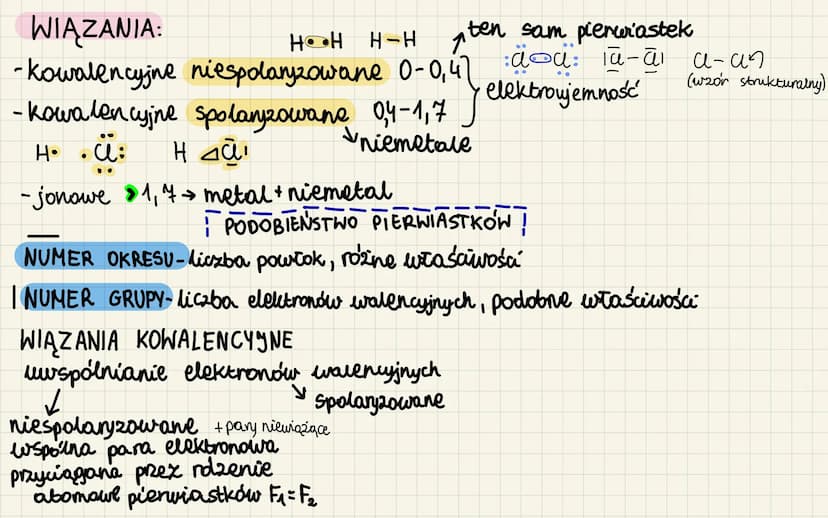 WIĄZANIA:
H••H H–H
ten sam pierwiastek
-kowalencyjne niespolaryzowane 0-0,4
:Cl Cl: |Cl-Cl| Cl-Cl
(wzór strukturalny)
elektroujemność
-kowalencyjne spolaryzowane 0,4-1,7
niemetale
H• •Cl: H ◁Cl|
-jonowe >1,7→ metal+niemetal
PODOBIEŃSTWO PIERWIASTKÓW
NUMER OKRESU-liczba powłok, różne właściwości
NUMER GRUPY-liczba elektronów walencyjnych, podobne właściwości
WIĄZANIA KOWALENCYJNE
uwspólnianie elektronów walencyjnych
spolaryzowane
niespolaryzowane +pary niewiążące
wspólna para elektronowa
przyciągana przez rdzenie
atomowe pierwiastków F₁=F₂